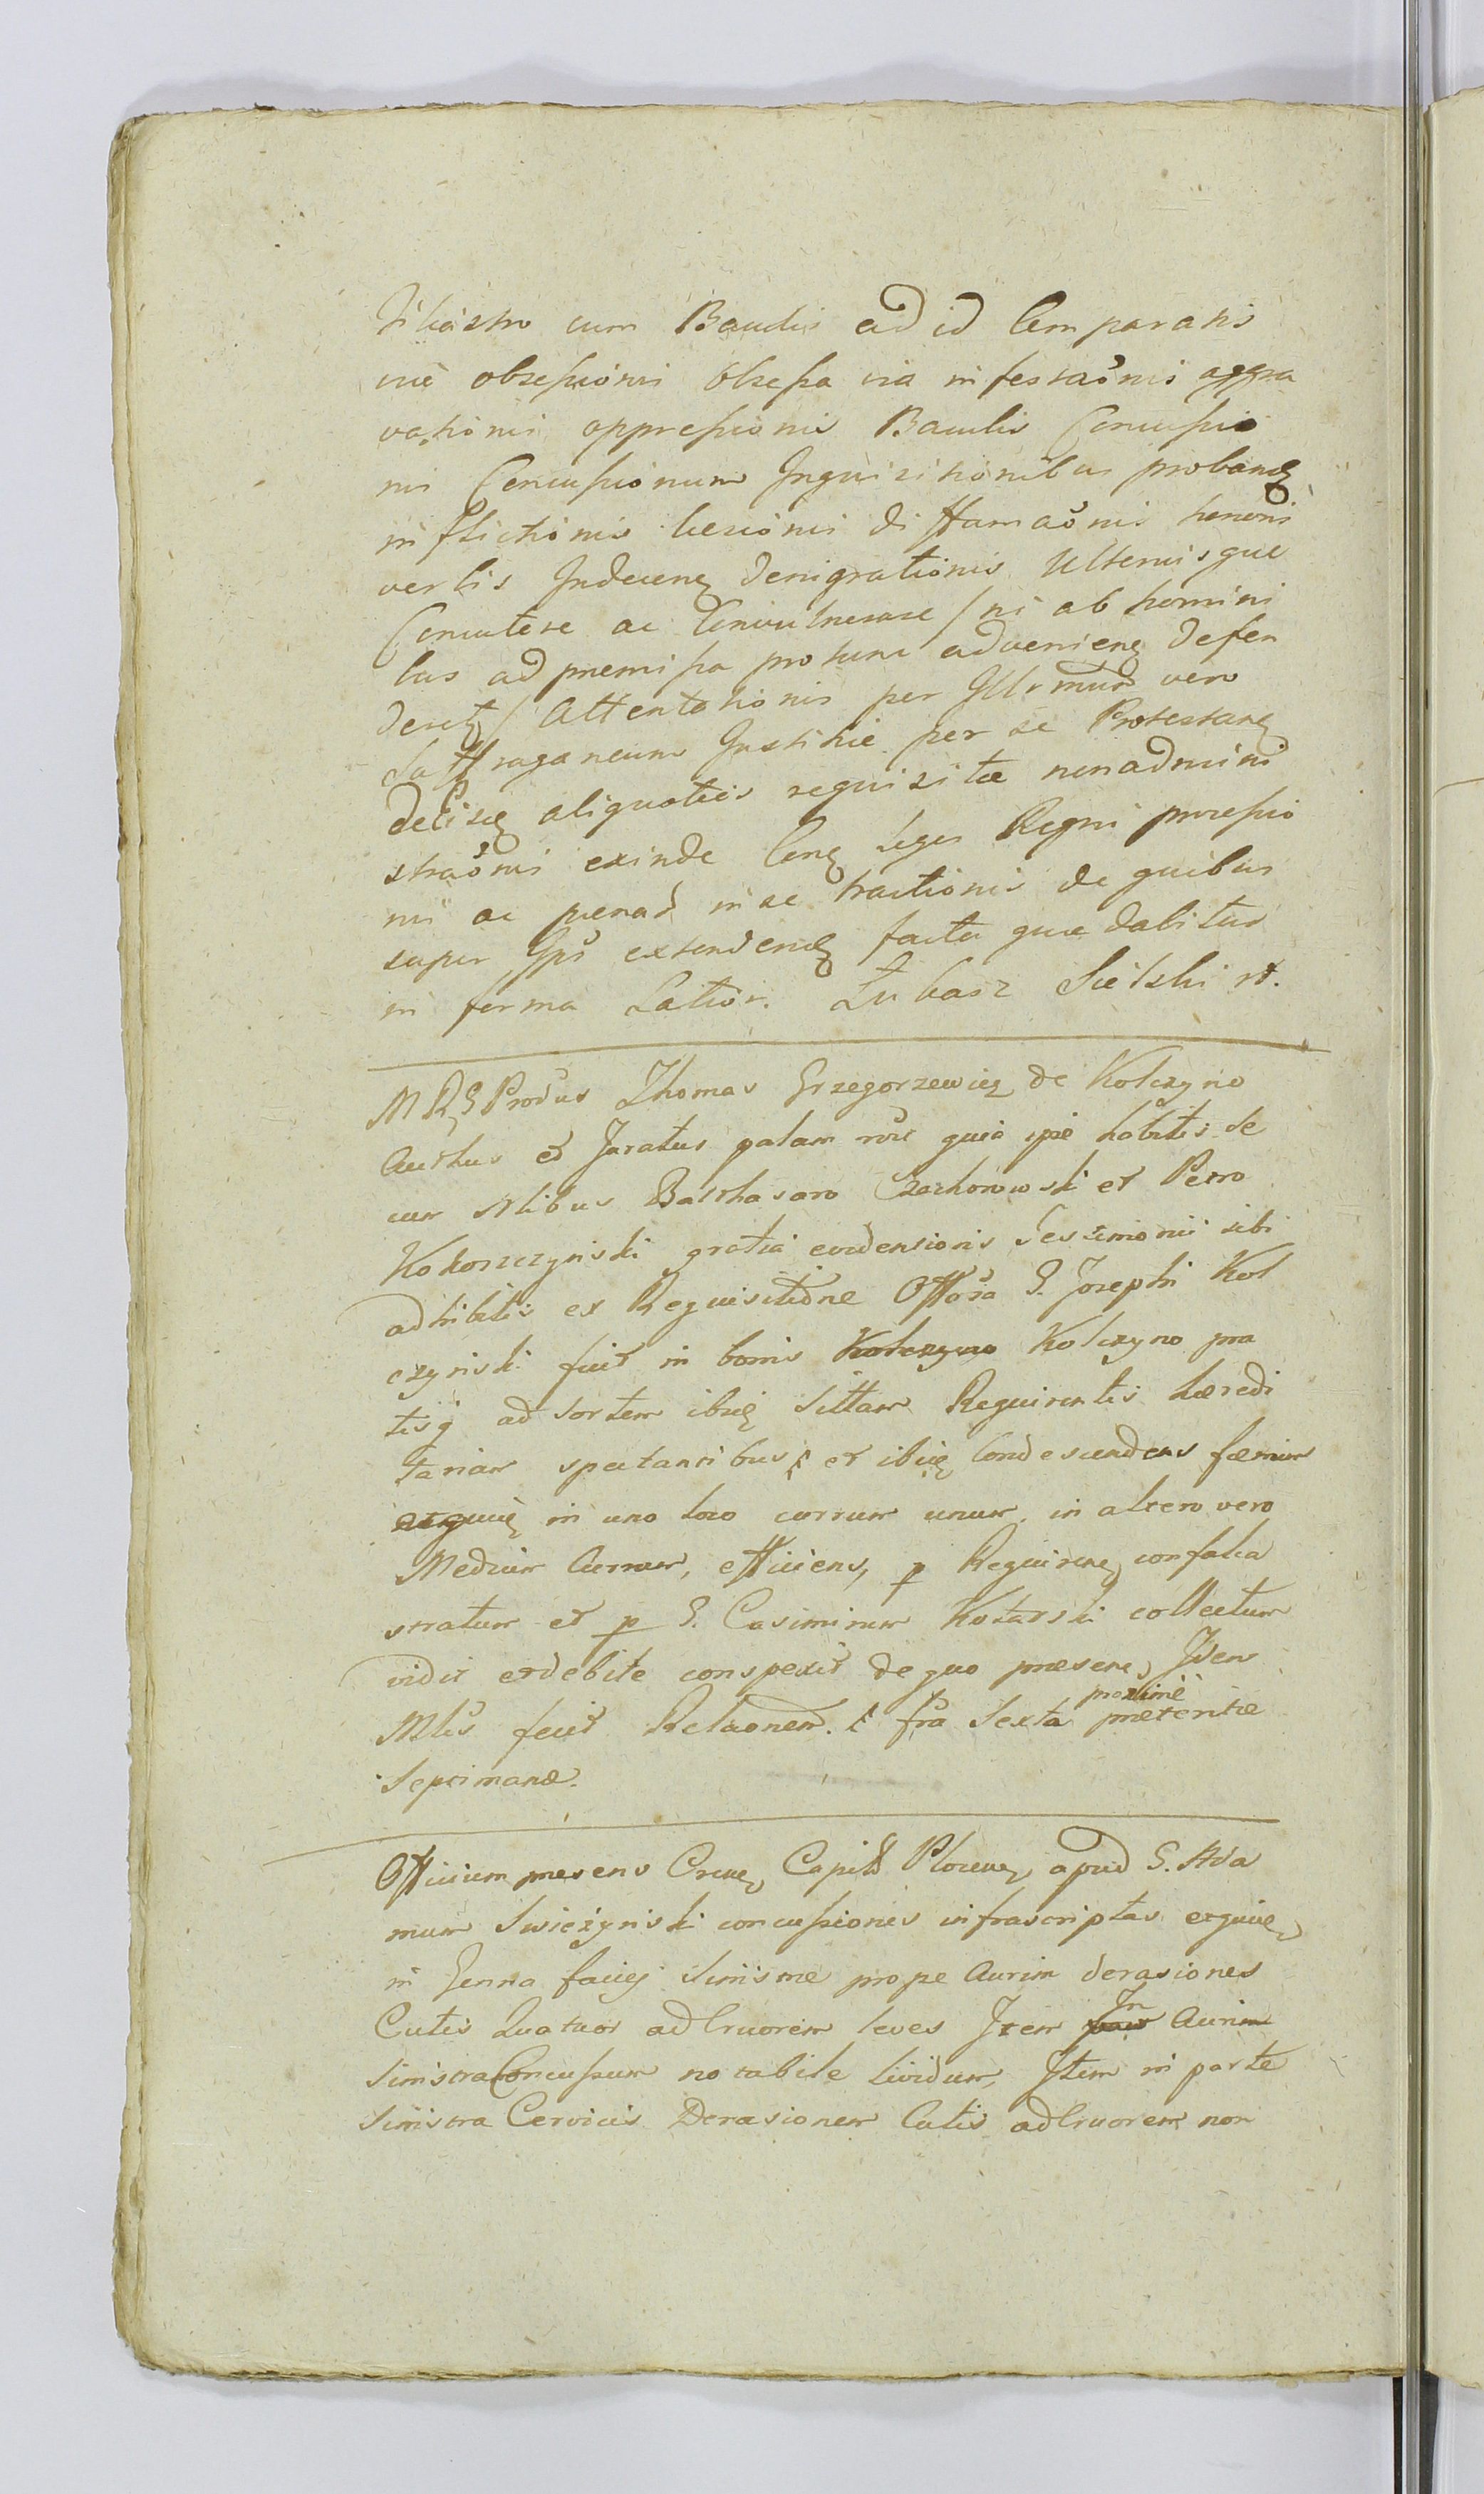 cum Baculis ad id Comparatis
obsessionis obsessa via infestaonis aggra
vationis oppressionis Baculis Concussio
nis Concussionum Inquisitionibus proband
inflictionis lesionis diffamaonis honoris
verbis Indecen denigrationis Ulteriusque
Concutere ac Convulnerare / ni ab homini
bus ad premissa protunc advenien defen
deret / Attentationis per Illrmum vero
Saffraganeum Justitie per se Protestan
aliquoties requisitæ nonadmini
straonis exinde Con Leges Regni processio
nis ac penas in se tractionis de quibus
super Ips extenden facta que dabitur
in forma Latior. Łukasz Sielski
M R G Produs Thomas Grzegorzewicz de Kolczyno
Authus et Juratus palam quia ipse habitis se
cum Nlibus Balthasaro Czachorowski et Petro
Kokoszczynski gratia evidensionis Testimonii sibi
adhibitis ex Requisitione G. Josephi Kol
czynski fuit in bonis Kolczyno Kolczyno pra
tisq ad Sortem Sittam Requirentis hæredi
tariam spectantibus et ibiq Condescendens fænum
in uno loco currum unum in altero vero
Medium Currum, efficiens, p Requiren confalca
stratum et p G. Casimirum Kotarski collectum
vidit et debite conspexit de quo presens Idem
Mlis fecit Relaonem. fra Sexta proxime præteritæ
Septimanæ.
Officium presens Crense Capitl Plocen apud G. Ada
mum Swiezynski concussiones infrascriptas
in Genna faciej Sinistræ prope Aurim derasiones
Cutis Quatuor ad Cruorem leves Item In Aurim
Sinistra Concussum notabile lividum, Item in parte
Sinistra Cervicis Derasionem Cutis ad Cruorem non